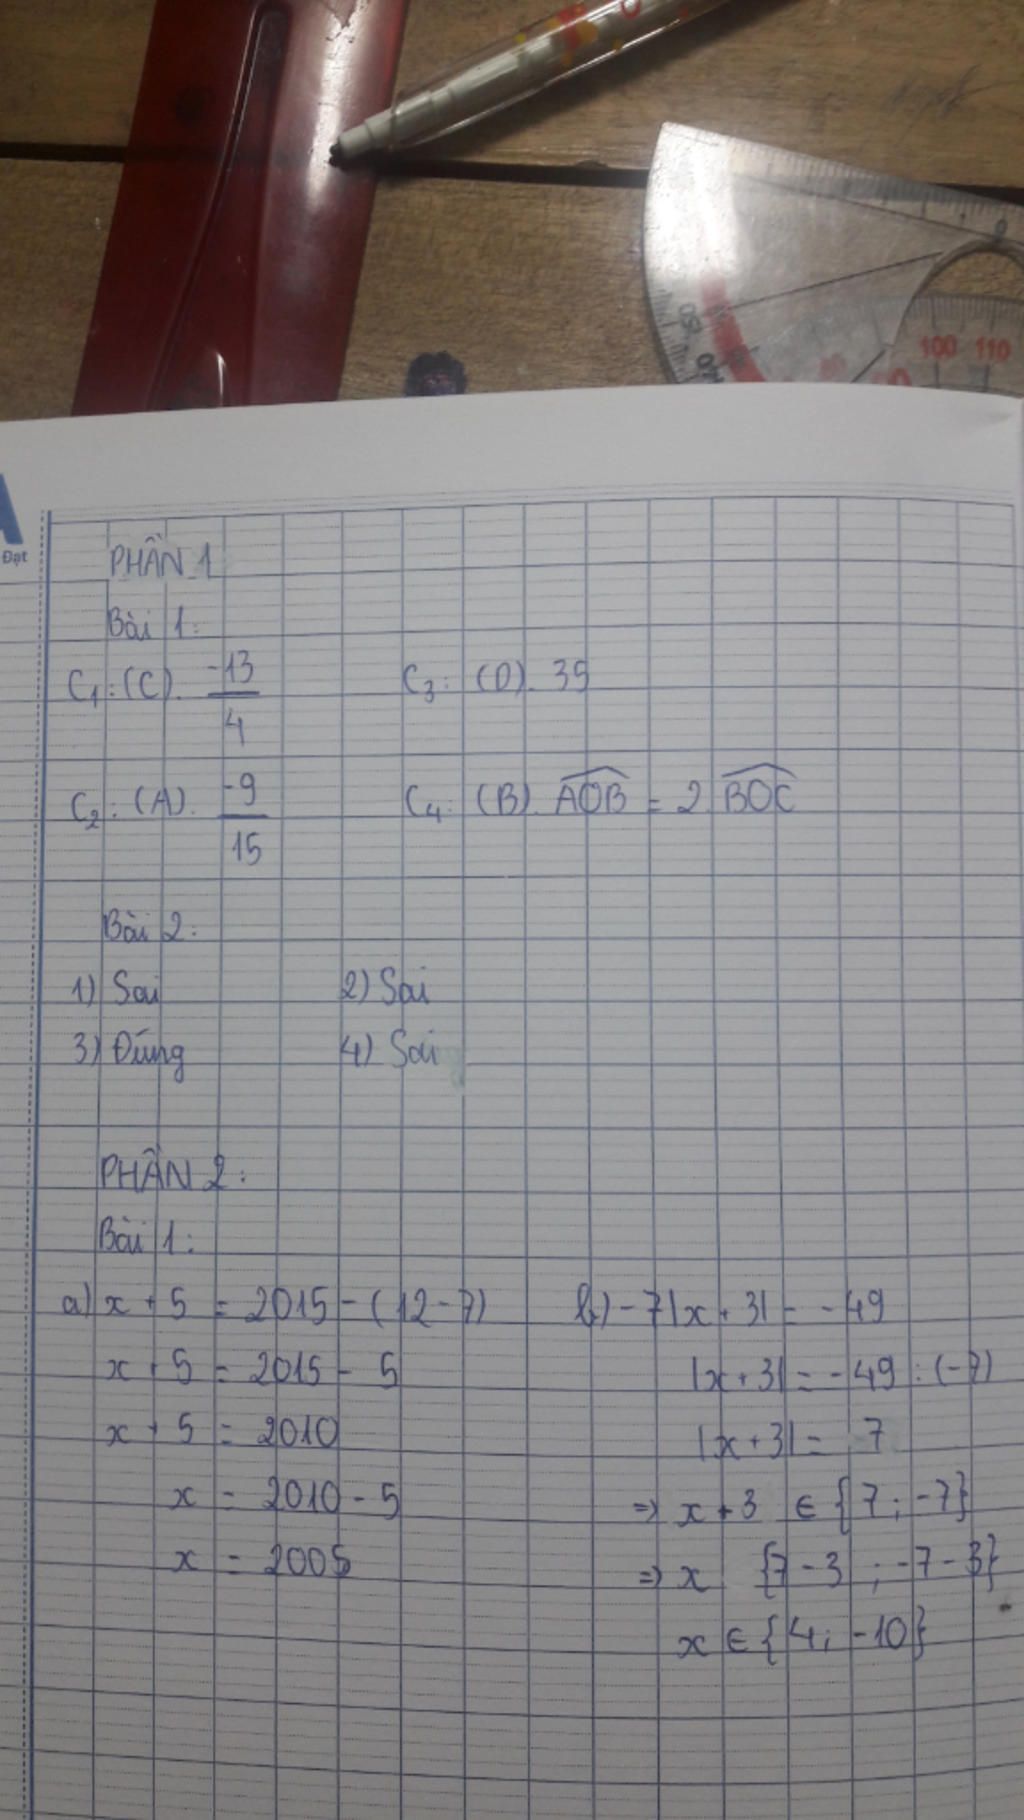 Đạt
PHẦN 1
Bài 1:
C₁: (C). -13/4
C₃: (D). 39
C₂: (A). -9/15
C₄: (B). AOB = 2 BOC
Bài 2:
1) Sai
2) Sai
3) Đúng
4) Sai
PHẦN 2:
Bài 1:
a) x + 5 = 2015 - (12 - 7)
x + 5 = 2015 - 5
x + 5 = 2010
x = 2010 - 5
x = 2005
b) -7|x + 3| = -49
|x + 3| = -49 : (-7)
|x + 3| = 7
=> x + 3 ∈ {7; -7}
=> x {7 - 3 ; -7 - 3}
x ∈ {4; -10}
100 110